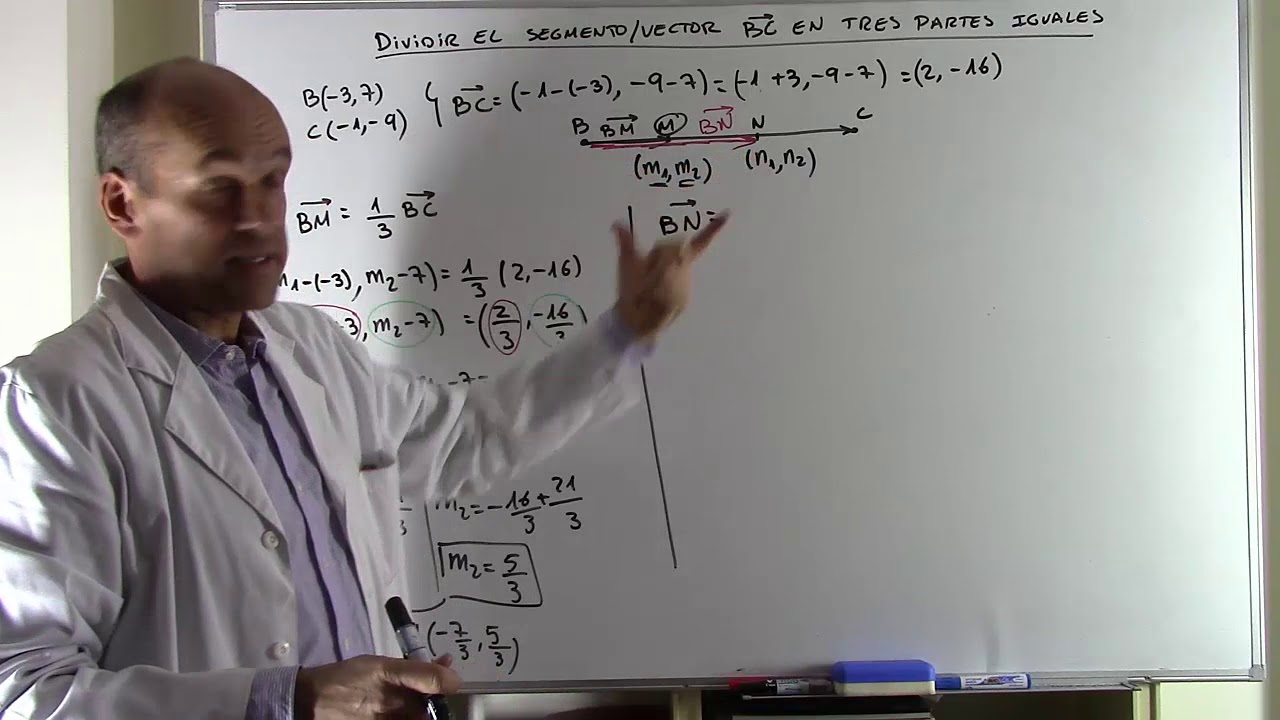 DIVIDIR EL SEGMENTO/VECTOR BC→ EN TRES PARTES IGUALES
B(-3,7)
C(-1,-9)
BC→ = (-1-(-3), -9-7) = (-1+3, -9-7) = (2, -16)
B BM→ M BN→ N C
(m₁,m₂) (n₁,n₂)
BM→ = 1/3 BC→
BN→ =
1-(-3), m₂-7) = 1/3 (2,-16)
3, m₂-7) = (2/3, -16/3)
m₂ = -16/3 + 21/3
m₂ = 5/3
(-7/3, 5/3)